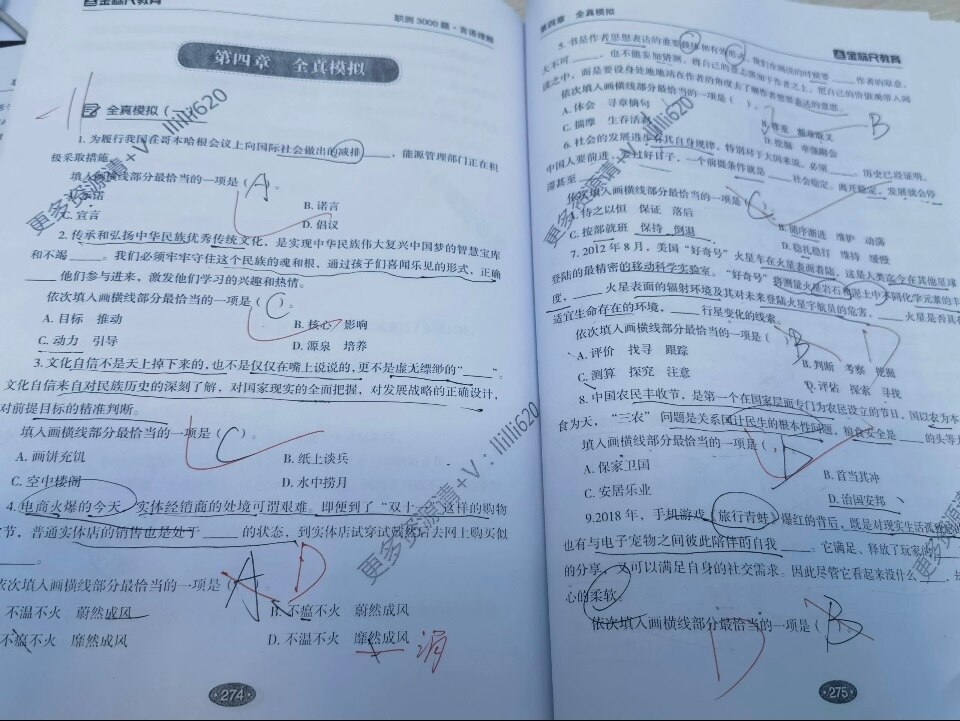 金标尺教育
职测3000题·言语理解
第四章 全真模拟
全真模拟（一）
1. 为履行我国在哥本哈根会议上向国际社会做出的减排______，能源管理部门正在积
极采取措施。
填入画横线部分最恰当的一项是（ A ）。
A. 承诺 B. 诺言
C. 宣言 D. 倡议
2. 传承和弘扬中华民族优秀传统文化，是实现中华民族伟大复兴中国梦的智慧宝库
和不竭______。我们必须牢牢守住这个民族的魂和根，通过孩子们喜闻乐见的形式，正确
______他们参与进来，激发他们学习的兴趣和热情。
依次填入画横线部分最恰当的一项是（ C ）。
A. 目标 推动 B. 核心 影响
C. 动力 引导 D. 源泉 培养
3. 文化自信不是天上掉下来的，也不是仅仅在嘴上说说的，更不是虚无缥缈的“______”。
文化自信来自对民族历史的深刻了解，对国家现实的全面把握，对发展战略的正确设计，
对前提目标的精准判断。
填入画横线部分最恰当的一项是（ C ）。
A. 画饼充饥 B. 纸上谈兵
C. 空中楼阁 D. 水中捞月
4. 电商火爆的今天，实体经销商的处境可谓艰难，即便到了“双十一”这样的购物
节，普通实体店的销售也是处于______的状态，到实体店试穿试戴然后去网上购买似
______。
依次填入画横线部分最恰当的一项是 A D
不温不火 蔚然成风 B. 不瘟不火 蔚然成风
不瘟不火 靡然成风 D. 不温不火 靡然成风
·274·
第四章 全真模拟
金标尺教育
5. 书是作者思想表达的重要载体和有效形式，我们在阅读的时候要______作者的原意，
大不可______，也不能妄加猜测，将自己的意志强加于作者之上，更自己的价值观带入阅
读之中，而是要设身处地地站在作者的角度去了解作者想要表达的意思。
依次填入画横线部分最恰当的一项是（ ）。 B
A. 体会 寻章摘句 B. 尊重 断章取义
C. 揣摩 生吞活剥 D. 挖掘 牵强附会
6. 社会的发展进步有其自身规律，特别对于大国来说，必须______。历史已经证明，
中国人要前进，要过好日子，一个前提条件就是______社会稳定。离开稳定，发展就会停
滞甚至______。
依次填入画横线部分最恰当的一项是（ C ）。
A. 持之以恒 保证 落后 B. 循序渐进 维护 动荡
C. 按部就班 保持 倒退 D. 稳扎稳打 维持 缓慢
7. 2012年8月，美国“好奇号”火星车在火星表面着陆，这是人类迄今在其他星球
登陆的最精密的移动科学实验室。“好奇号”将测量火星岩石和泥土中不同化学元素的丰
度，______火星表面的辐射环境及其对未来登陆火星宇航员的危害，______火星是否具有
适宜生命存在的环境，______行星变化的线索。
依次填入画横线部分最恰当的一项是（ B D
A. 评价 找寻 跟踪 B. 判断 考察 挖掘
C. 测算 探究 注意 D. 评估 探索 寻找
8. 中国农民丰收节，是第一个在国家层面专门为农民设立的节日，国以农为本
食为天，“三农”问题是关系国计民生的根本性问题，粮食安全是______的头等大
填入画横线部分最恰当的一项是（ D
A. 保家卫国 B. 首当其冲
C. 安居乐业 D. 治国安邦
9. 2018年，手机游戏《旅行青蛙》爆红的背后，既是对现实生活孤
也有与电子宠物之间彼此陪伴的自我______。它满足、释放了玩家的
的分享，又可以满足自身的社交需求。因此尽管它看起来没什么______，却
心的柔软。
依次填入画横线部分最恰当的一项是（ B
D
·275·
更多资源请+V：lilili620
更多资源请+V：lilili620
更多资源请+V：lilili620
更多资源请+V：lilili620